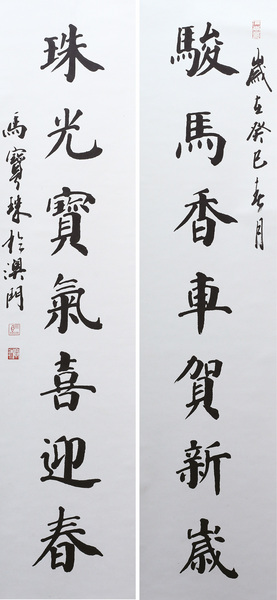 歲在癸巳春月
駿馬香車賀新歲
珠光寶氣喜迎春
馬寶珠於澳門